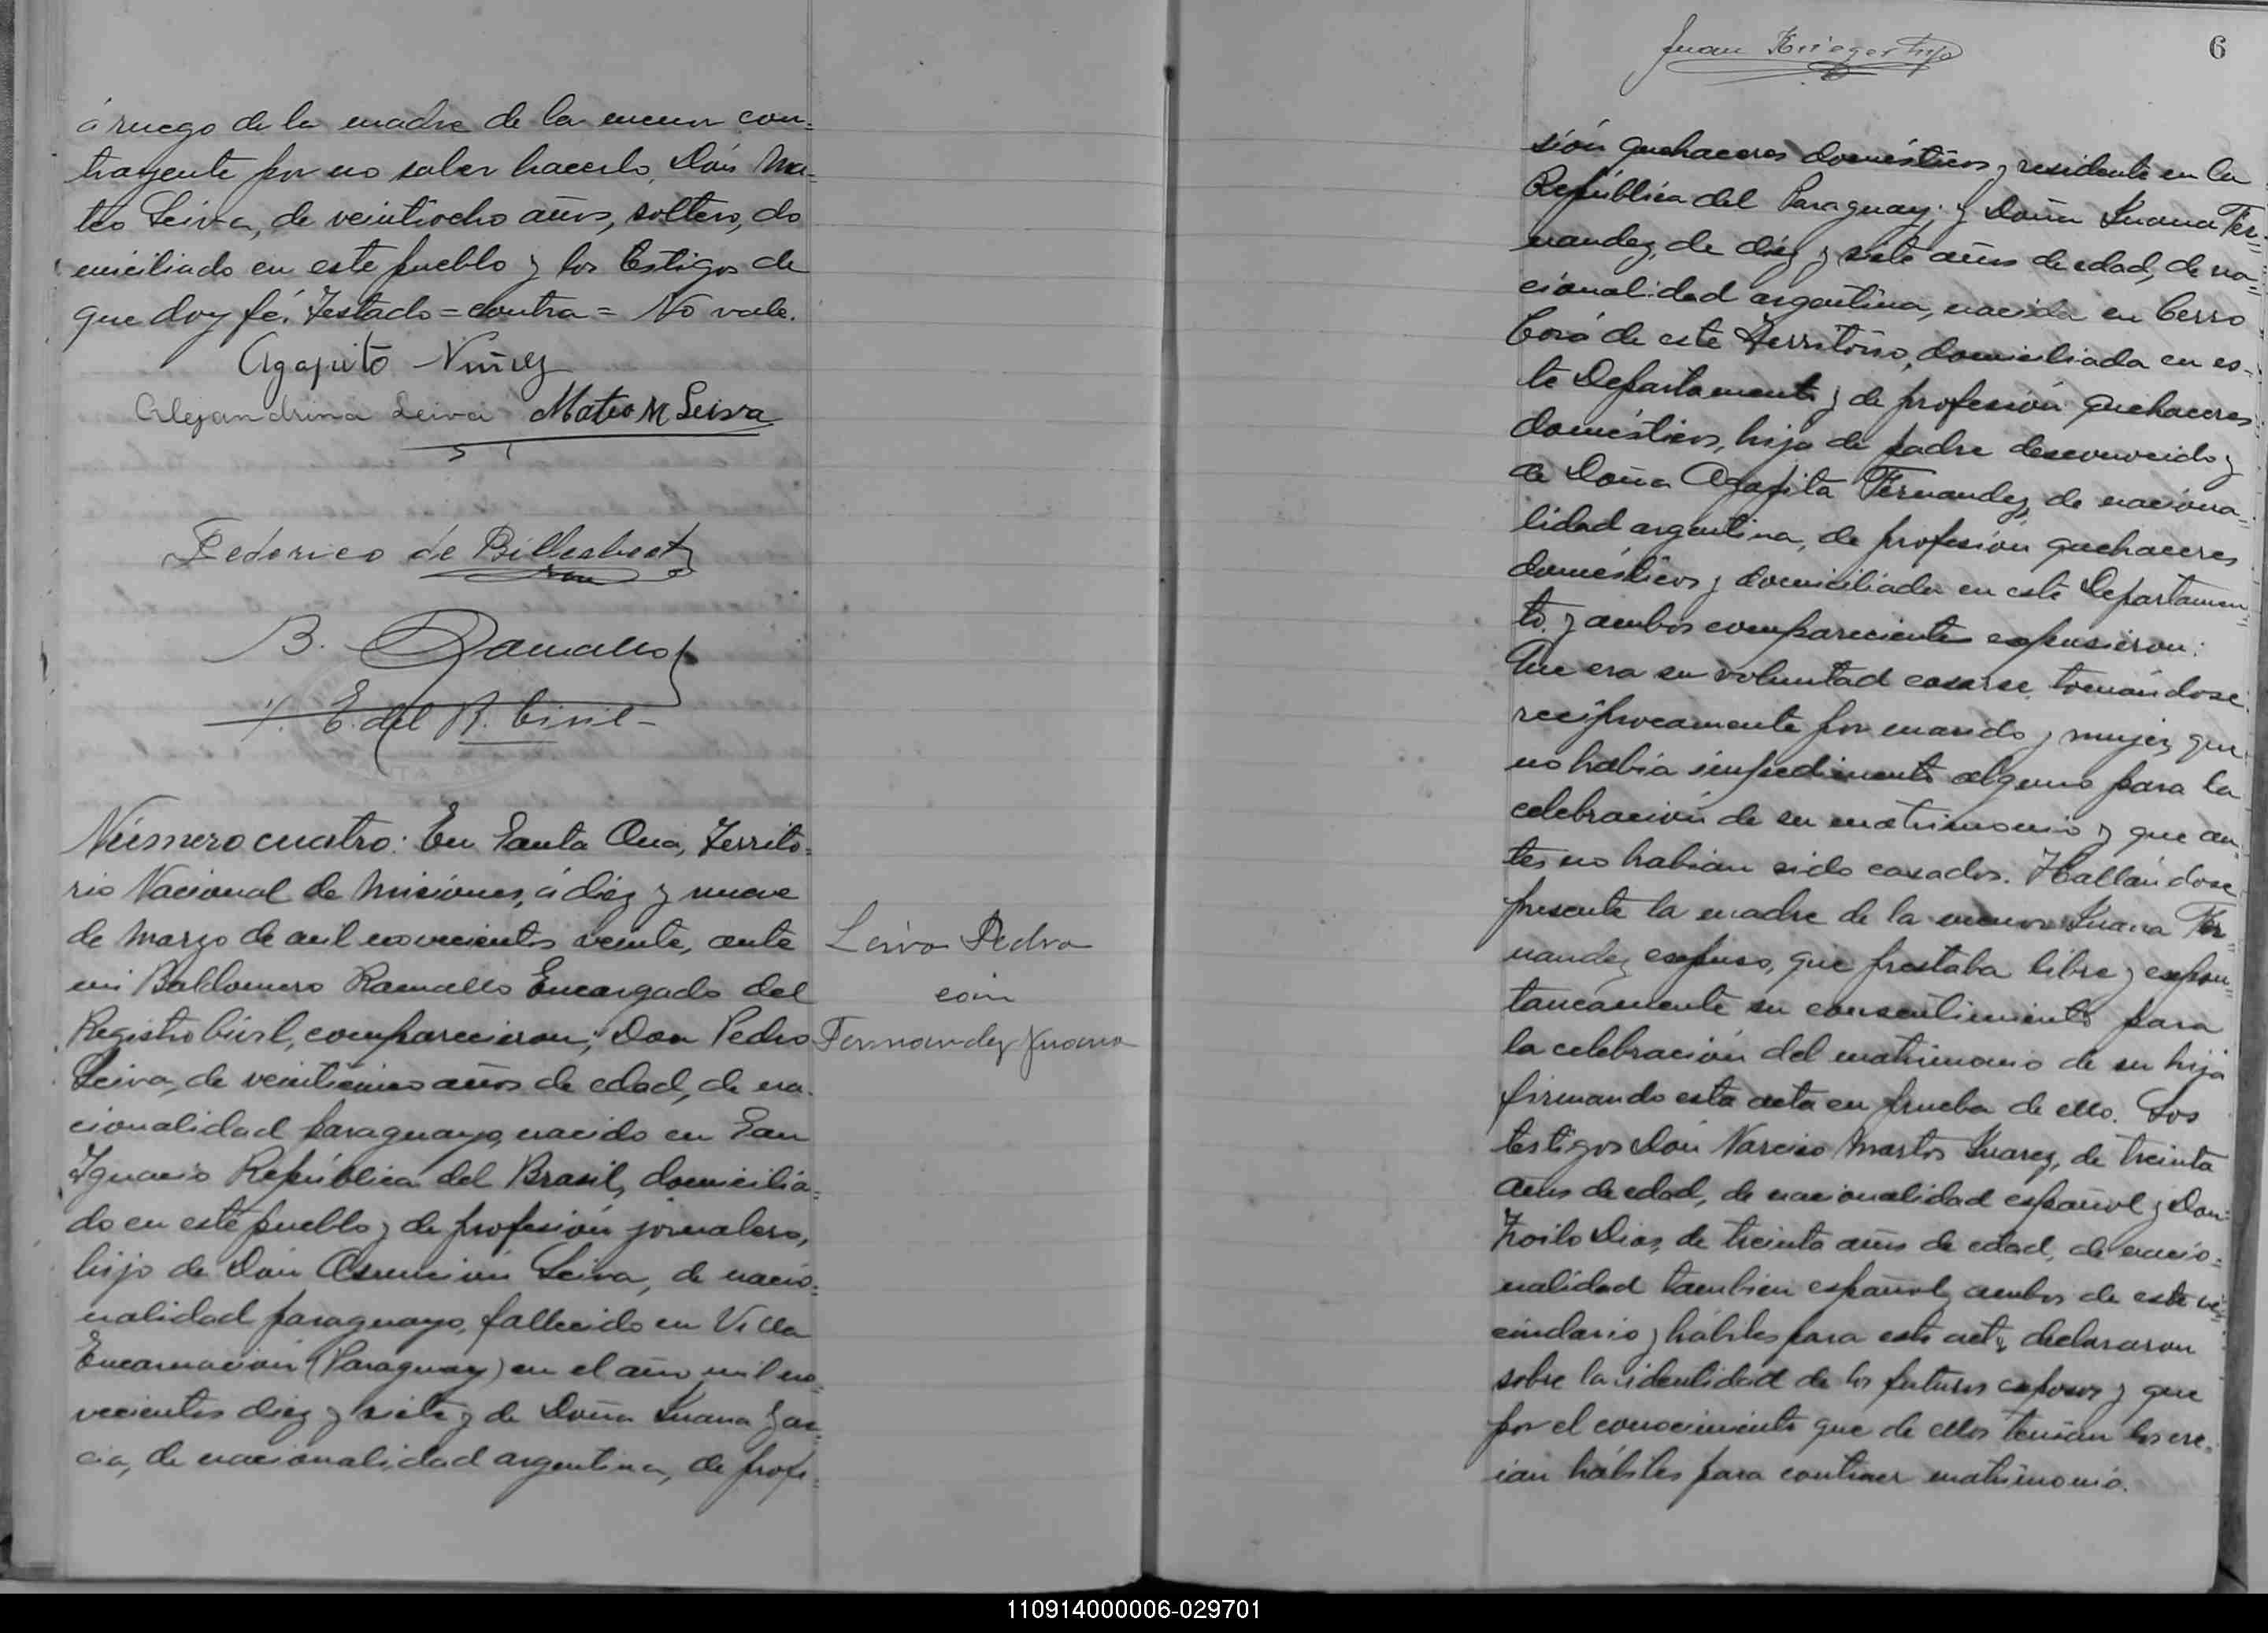 á ruego de la madre de la menor con=
trayente por no saber hacerlo, Don Ma=
teo Leiva, de veintiocho años, soltero, do
miciliado en este pueblo y los testigos de
que doy fé. Testado = contra = No vale.
Agapito Nuñez
Alejandrina Leiva Mateo M Leiva
Federico de
B. Ramallo
E. del R. Civil -
Número cuatro: En Santa Ana, Territo=
rio Nacional de Misiones, á diéz y nueve
de Marzo de mil novecientos veinte, ante
mi Baldomero Ramallo Encargado del
Registro Civil, comparecieron; Don Pedro
Leiva, de veinticinco años de edad, de na-
cionalidad paraguayo, nacido en San
Ignacio República del Brasil, domicilia=
do en este pueblo y de profesión jornalero,
hijo de Don Asunción Leiva, de nacio=
nalidad paraguayo, fallecido en Villa
Encarnación (Paraguay) en el año mil no=
vecientos diez y siete y de Doña Juana Gar=
cia, de nacionalidad argentina, de profe=
Leiva Pedro
con
Fernandez Juana
Juan Krieger hijo
6
sión quehaceres domésticos y residente en la
República del Paraguay; y Doña Juana Fer=
nandez, de diéz y siete años de edad, de na=
cionalidad argentina, nacida en Cerro
Corá de este Territorio, domiciliada en es-
te Departamento y de profesión quehaceres
domésticos, hija de padre desconocido y
de Doña Agapita Fernandez, de naciona=
lidad argentina, de profesión quehaceres
domésticos y domiciliada en este Departamen=
to. y ambos comparecientes expusieron:
Que era su voluntad casarse, tomándose
recíprocamente por marido y mujer, que
no había impedimento alguno para la
celebración de su matrimonio y que an=
tes no habían sido casados. Hallándose
presente la madre de la menor Juana Fer=
nandez expuso, que prestaba libre y expon=
taneamente su consentimiento para
la celebración del matrimonio de su hija
firmando esta acta en prueba de ello. Los
testigos Don Narciso Martos Juarez, de treinta
años de edad, de nacionalidad español y Don
Zoilo Dias, de treinta años de edad, de nacio=
nalidad tambien español, ambos de este ve=
cindario y hábiles para este acto, declararon
sobre la identidad de los futuros esposos y que
por el conocimiento que de ellos tenían los cre=
ían hábiles para contraer matrimonio.
110914000006-029701